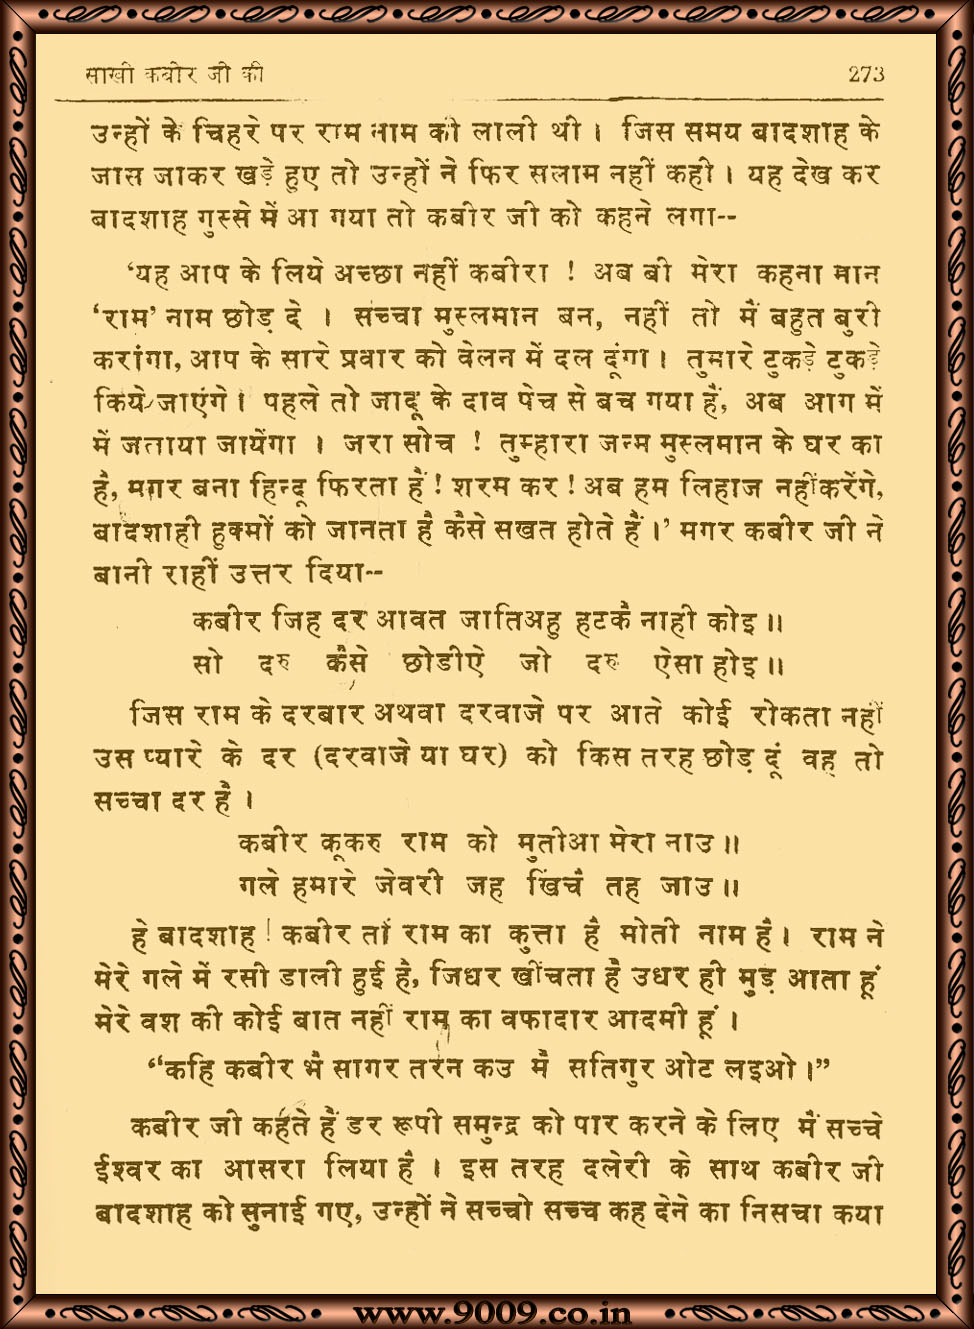 साखी कबीर जी की 273
उन्हों के चिहरे पर राम नाम की लाली थी। जिस समय बादशाह के
जास जाकर खड़े हुए तो उन्हों ने फिर सलाम नहीं कही। यह देख कर
बादशाह गुस्से में आ गया तो कबीर जी को कहने लगा--
‘यह आप के लिये अच्छा नहीं कबीरा ! अब बी मेरा कहना मान
‘राम’ नाम छोड़ दे । सच्चा मुस्लमान बन, नहीं तो मैं बहुत बुरी
करांगा, आप के सारे प्रवार को वेलन में दल दूंगा। तुमारे टुकड़े टुकड़े
किये जाएंगे। पहले तो जादू के दाव पेच से बच गया हैं, अब आग में
में जताया जायेंगा । जरा सोच ! तुम्हारा जन्म मुस्लमान के घर का
है, मगर बना हिन्दू फिरता हैं! शरम कर! अब हम लिहाज नहीं करेंगे,
बादशाही हुक्मों को जानता है कैसे सखत होते हैं।’ मगर कबीर जी ने
बानी राहीं उत्तर दिया--
कबीर जिह दर आवत जातिअहु हटकै नाही कोइ॥
सो दरु कैसे छोडीऐ जो दरु ऐसा होइ॥
जिस राम के दरबार अथवा दरवाजे पर आते कोई रोकता नहीं
उस प्यारे के दर (दरवाजे या घर) को किस तरह छोड़ दूं वह तो
सच्चा दर है।
कबीर कूकरु राम को मुतीआ मेरा नाउ॥
गले हमारे जेवरी जह खिंचै तह जाउ॥
हे बादशाह! कबीर तां राम का कुत्ता है मोती नाम है। राम ने
मेरे गले में रसी डाली हुई है, जिधर खींचता है उधर ही मुड़ आता हूं
मेरे वश की कोई बात नहीं राम का वफादार आदमी हूं।
“कहि कबीर भै सागर तरन कउ मै सतिगुर ओट लइओ।”
कबीर जी कहते हैं डर रूपी समुन्द्र को पार करने के लिए मैं सच्चे
ईश्वर का आसरा लिया है । इस तरह दलेरी के साथ कबीर जी
बादशाह को सुनाई गए, उन्हों ने सच्चो सच्च कह देने का निसचा कया
www.9009.co.in